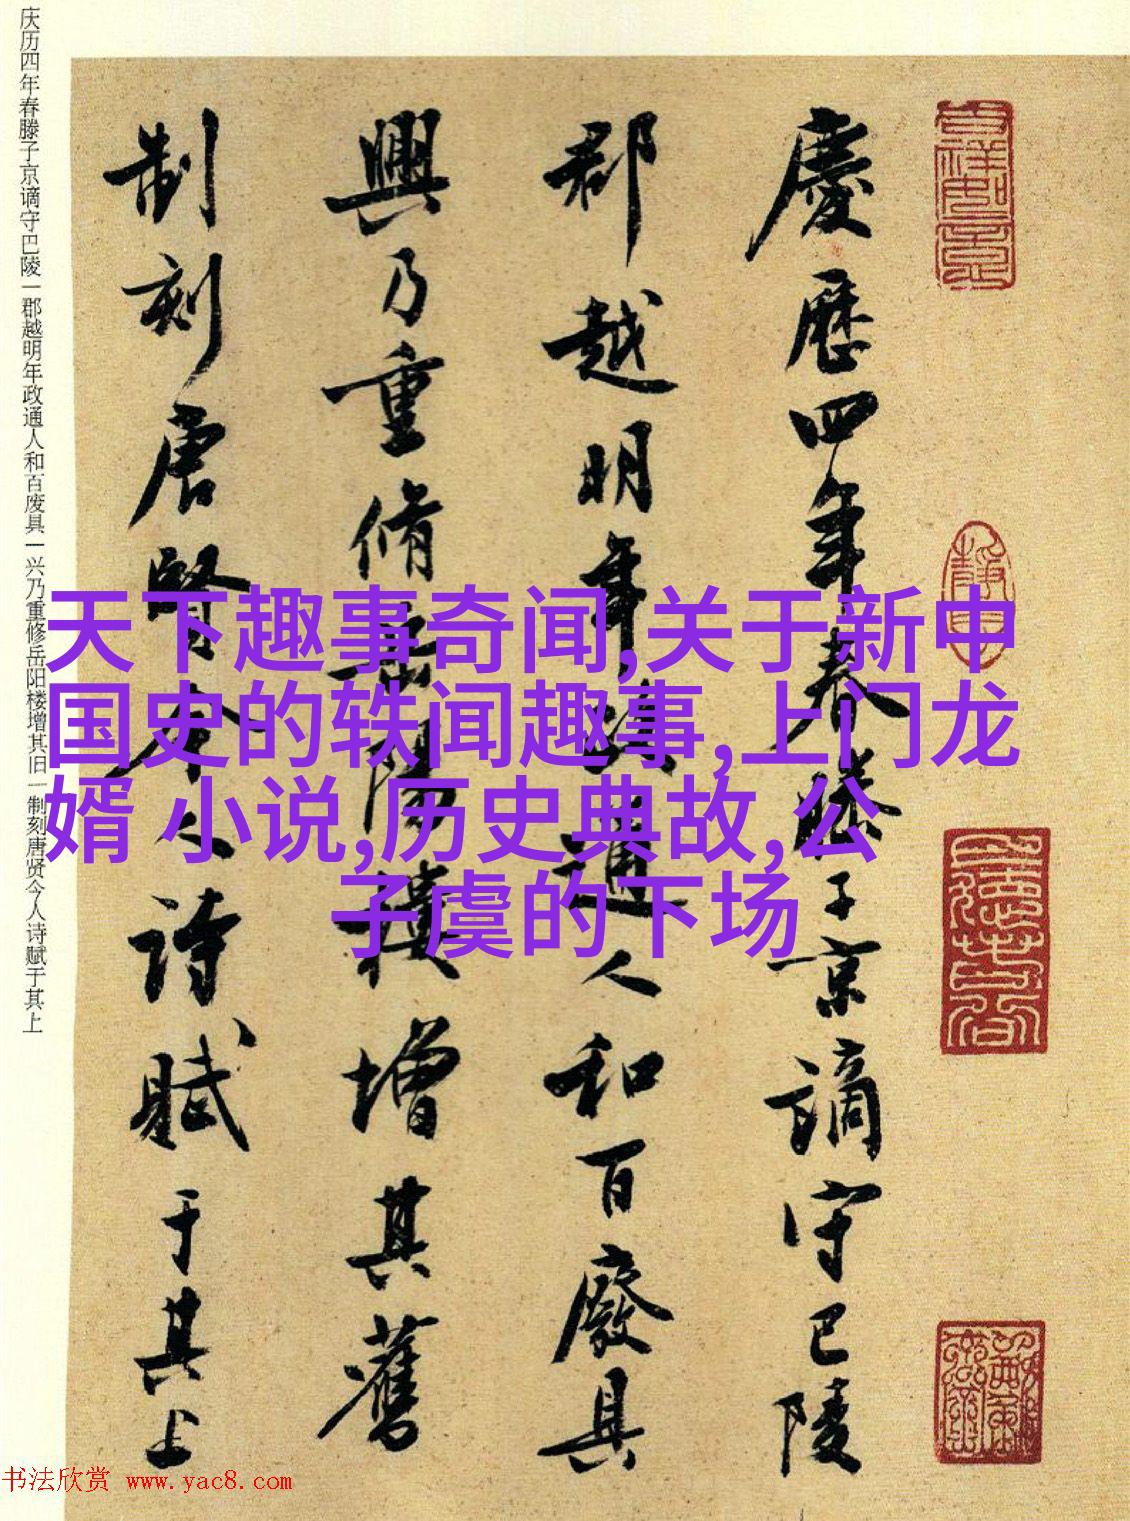 庆历四年春滕子京谪守巴陵一郡越明年政通人和百废具一兴乃重修岳阳楼增其旧一制刻唐贤今人诗赋于其上
慶歷四年春滕子京謫守巴陵
郡越明年政通人和百廢具
興乃重脩岳陽樓增其舊
制刻唐賢今人詩賦于其上
天下趣事奇闻,关于新中
国史的轶闻趣事,上门龙
婿 小说,历史典故,公
子虞的下场
书法欣赏 www.yac8.com